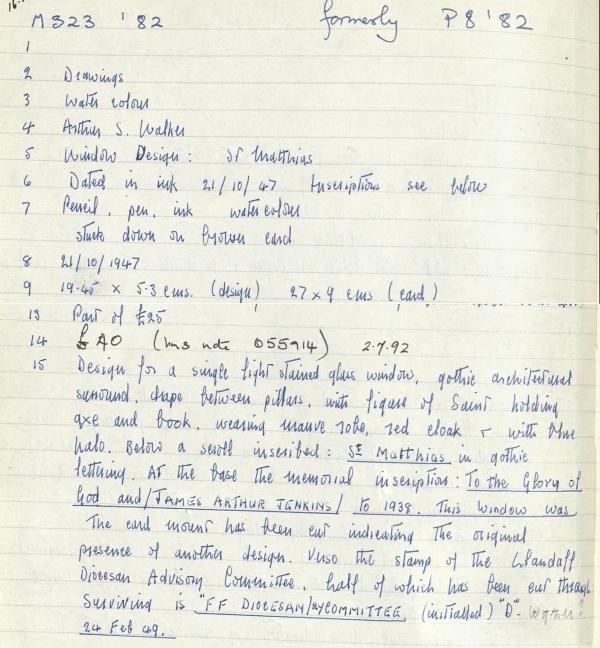 M323 '82 formerly P8 '82
1
2 Drawings
3 Water colour
4 Arthur S. Walker
5 Window Design: St Matthias
6 Dated in ink 21/10/47 Inscriptions see below
7 Pencil, pen, ink watercolour
stuck down on brown card
8 21/10/1947
9 19.45 x 5.3 cms. (design) 27 x 9 cms (card)
13 Part of £25
14 £AO (Ins note 055914) 2.7.92
15 Design for a single light stained glass window, gothic architectural
surround, drape between pillars, with figure of Saint holding
axe and book, wearing mauve robe, red cloak & with blue
halo. Below a scroll inscribed: St Matthias in gothic
lettering. At the base the memorial inscription: To the Glory of
God and/JAMES ARTHUR JENKINS/ to 1938. This window was
The card mount has been cut indicating the original
presence of another design. Verso the stamp of the Llandaff
Diocesan Advisory Committee, half of which has been cut through
Surviving is "FF DIOCESAN/RYCOMMITTEE (initialled) "D".
24 Feb 49.